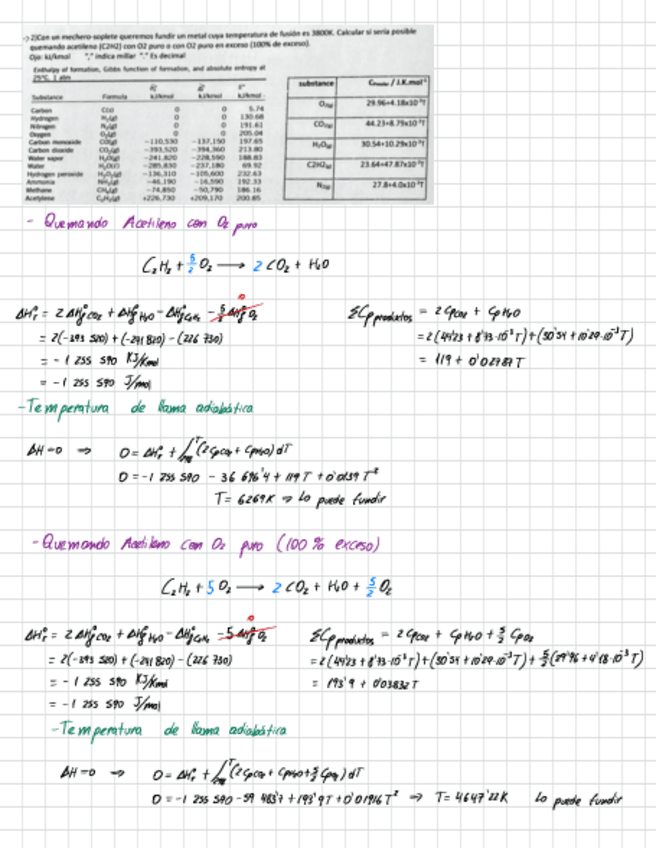 2) Con un mechero soplete queremos fundir un metal cuya temperatura de fusión es 3800K. Calcular si sería posible
quemando acetileno (C2H2) con O2 puro o con O2 puro en exceso (100% de exceso).
Ojo: kJ/kmol "," indica millar "." Es decimal
Enthalpy of formation, Gibbs function of formation, and absolute entropy at
25°C, 1 atm
Substance Formula kJ/kmol kJ/kmol kJ/kmol
Carbon C(s) 0 0 5.74
Hydrogen H₂(g) 0 0 130.68
Nitrogen N₂(g) 0 0 191.61
Oxygen O₂(g) 0 0 205.04
Carbon monoxide CO(g) −110,530 −137,150 197.65
Carbon dioxide CO₂(g) −393,520 −394,360 213.80
Water vapor H₂O(g) −241,820 −228,590 188.83
Water H₂O(l) −285,830 −237,180 69.92
Hydrogen peroxide H₂O₂(g) −136,310 −105,600 232.63
Ammonia NH₃(g) −46,190 −16,590 192.33
Methane CH₄(g) −74,850 −50,790 186.16
Acetylene C₂H₂(g) +226,730 +209,170 200.85
substance J.K.mol⁻¹
O₂(g) 29.96+4.18x10⁻³T
CO₂(g) 44.23+8.79x10⁻³T
H₂O(g) 30.54+10.29x10⁻³T
C2H2(g) 23.64+47.87x10⁻³T
N₂(g) 27.8+4.0x10⁻³T
- Quemando Acetileno con O₂ puro
C₂H₂ + 5/2 O₂ → 2 CO₂ + H₂O
ΔH°r = 2 ΔH°f CO₂ + ΔH°f H₂O − ΔH°f C₂H₂ − 5/2 ΔH°f O₂ 0
= 2(−393 520) + (−241 820) − (226 730)
= −1 255 590 KJ/Kmol
= −1 255 590 J/mol
ΣCp productos = 2 Cp CO₂ + Cp H₂O
= 2(44'23 + 8'79·10⁻³T) + (30'54 + 10'29·10⁻³T)
= 119 + 0'02787 T
- Temperatura de llama adiabática
ΔH = 0 ⇒ 0 = ΔH°r + ∫₂₉₈ᵀ (2Cp CO₂ + Cp H₂O) dT
0 = −1 255 590 − 36 696'4 + 119 T + 0'0139 T²
T = 6269K ⇒ Lo puede fundir
- Quemando Acetileno con O₂ puro (100 % exceso)
C₂H₂ + 5 O₂ → 2 CO₂ + H₂O + 5/2 O₂
ΔH°r = 2 ΔH°f CO₂ + ΔH°f H₂O − ΔH°f C₂H₂ − 5 ΔH°f O₂ 0
= 2(−393 520) + (−241 820) − (226 730)
= −1 255 590 KJ/Kmol
= −1 255 590 J/mol
ΣCp productos = 2 Cp CO₂ + Cp H₂O + 5/2 Cp O₂
= 2(44'23 + 8'79·10⁻³T) + (30'54 + 10'29·10⁻³T) + 5/2 (29'96 + 4'18·10⁻³T)
= 193'9 + 0'03832 T
- Temperatura de llama adiabática
ΔH = 0 ⇒ 0 = ΔH°r + ∫₂₉₈ᵀ (2Cp CO₂ + Cp H₂O + 5/2 Cp O₂) dT
0 = −1 255 590 − 59 483'7 + 193'9 T + 0'01916 T² ⇒ T = 4647'22K Lo puede fundir